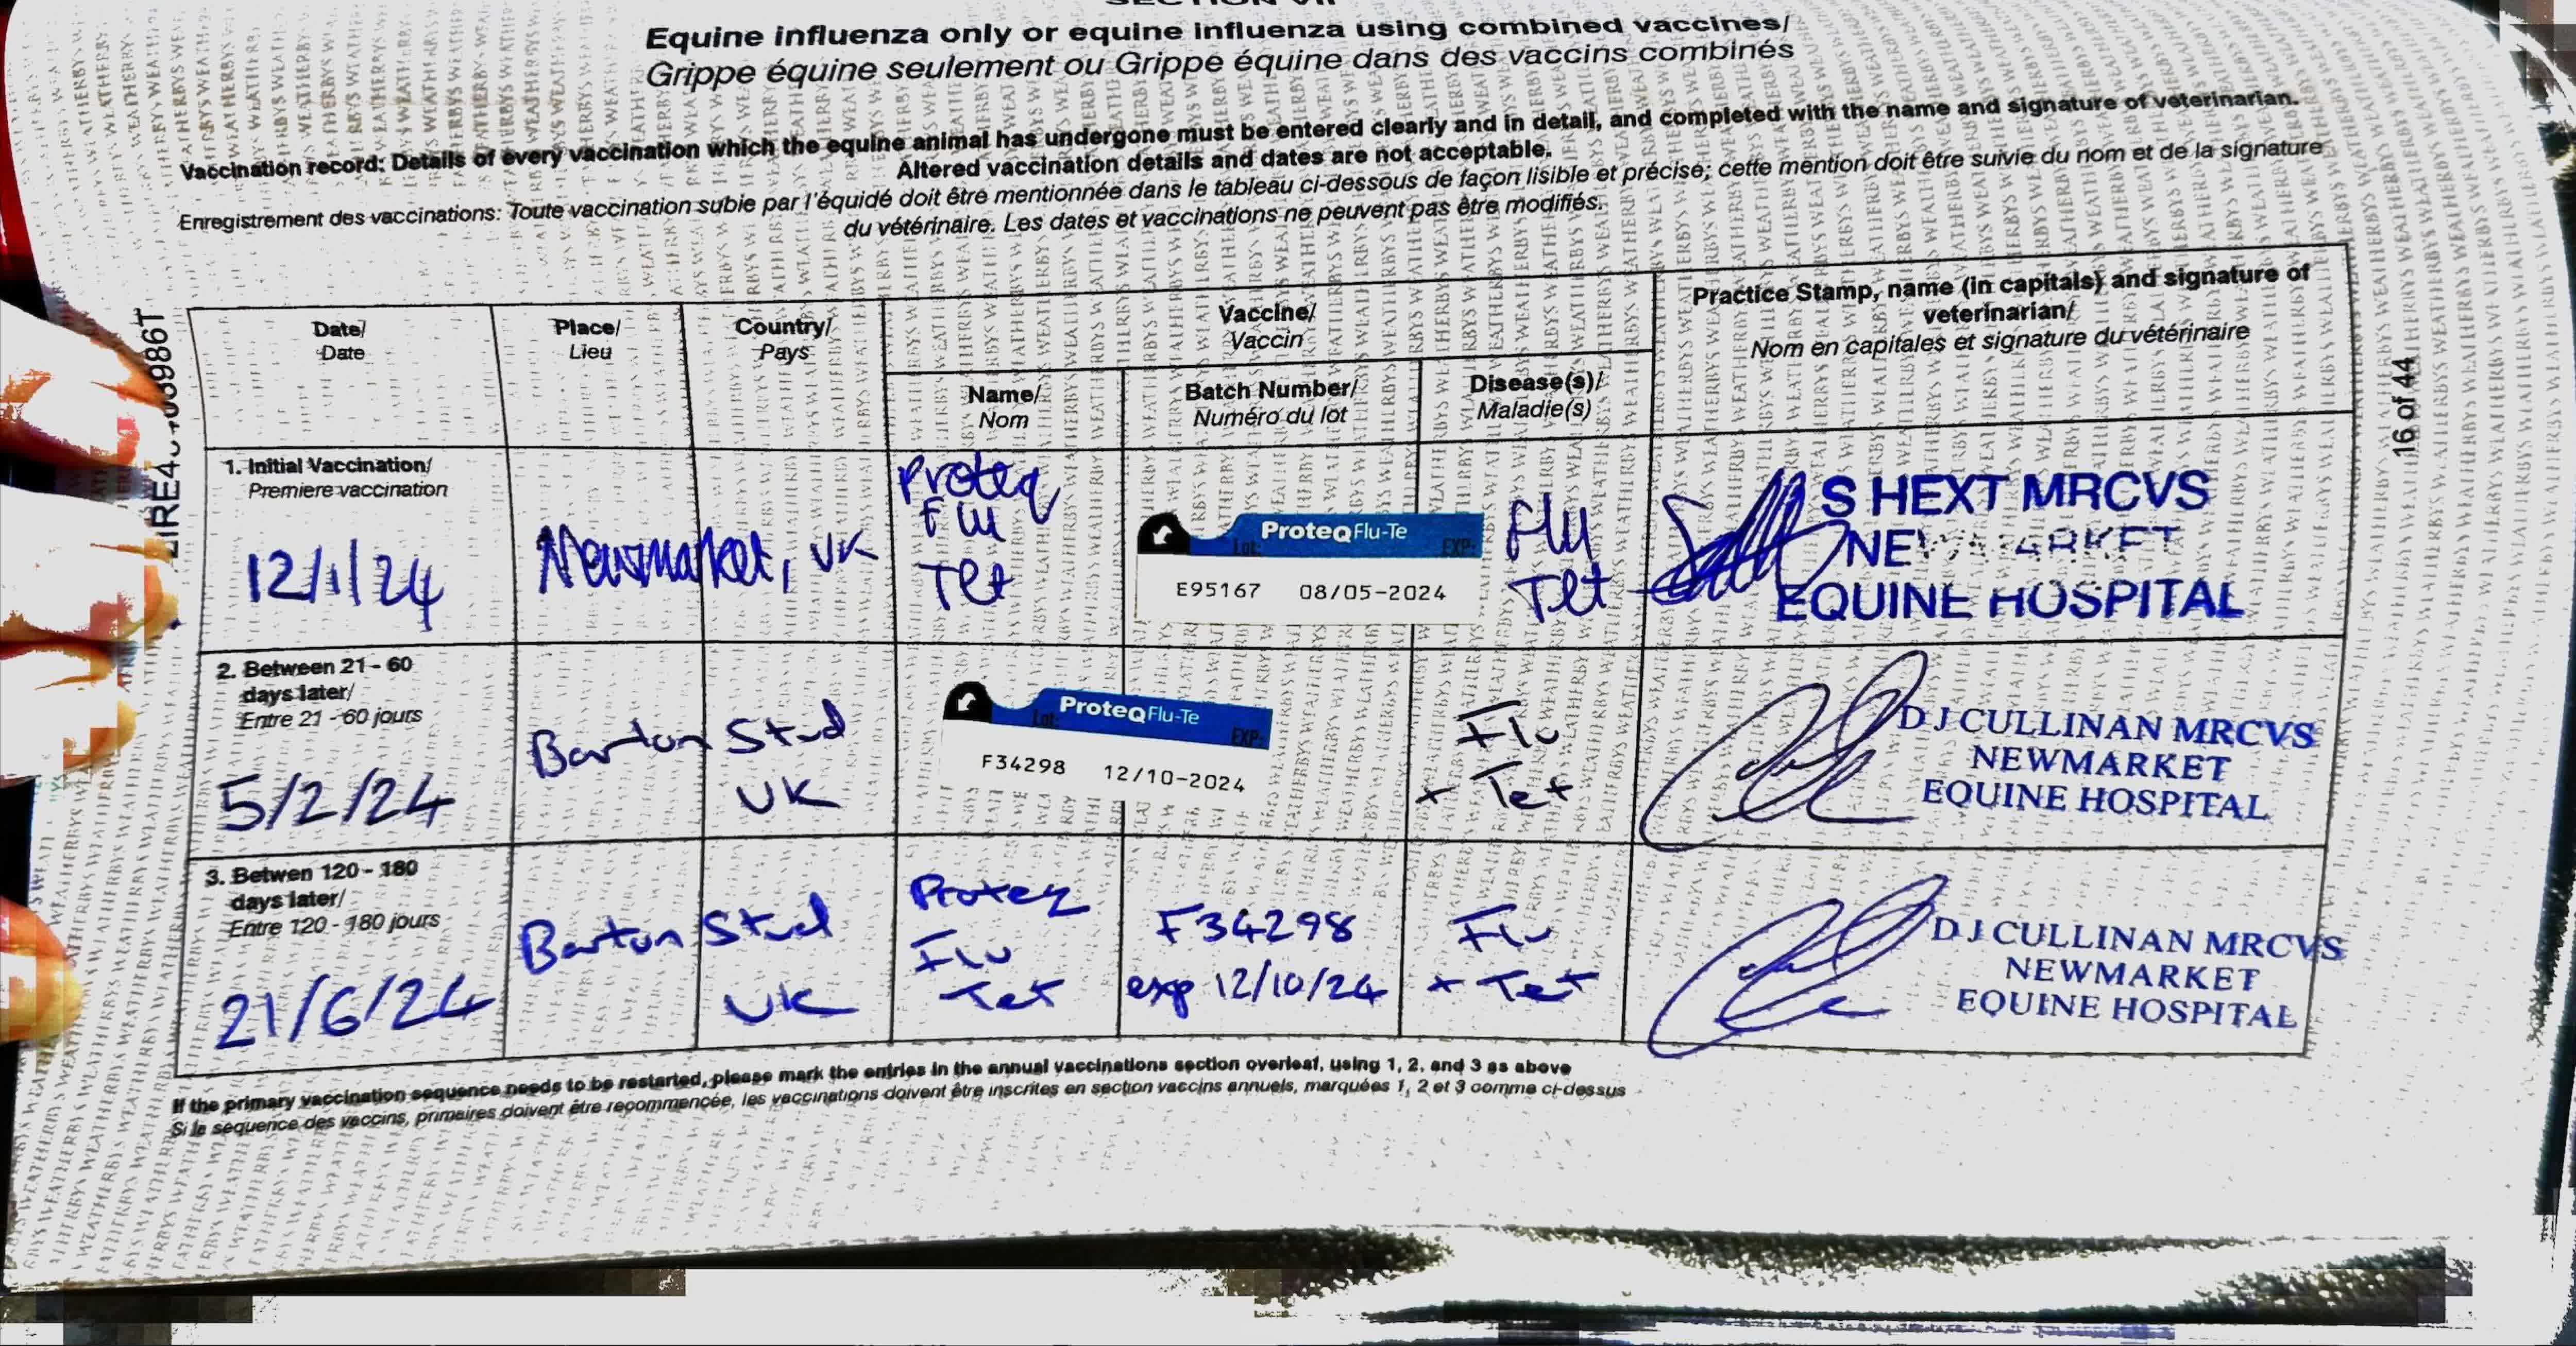 Equine influenza only or equine influenza using combined vaccines/
Grippe équine seulement ou Grippe équine dans des vaccins combinés
Vaccination record: Details of every vaccination which the equine animal has undergone must be entered clearly and in detail, and completed with the name and signature of veterinarian.
Altered vaccination details and dates are not acceptable.
Enregistrement des vaccinations: Toute vaccination subie par l'équidé doit être mentionnée dans le tableau ci-dessous de façon lisible et précise; cette mention doit être suivie du nom et de la signature
du vétérinaire. Les dates et vaccinations ne peuvent pas être modifiés.
Date/
Date
Place/
Lieu
Country/
Pays
Vaccine/
Vaccin
Name/
Nom
Batch Number/
Numéro du lot
Disease(s)/
Maladie(s)
Practice Stamp, name (in capitals) and signature of
veterinarian/
Nom en capitales et signature du vétérinaire
1. Initial Vaccination/
Premiere vaccination
12/1/24
Newmarket, UK
Proteq
Flu
Tet
ProteQFlu-Te
Lot: EXP:
E95167 08/05-2024
Flu
Tet
S HEXT MRCVS
NEWMARKET
EQUINE HOSPITAL
2. Between 21 - 60
days later/
Entre 21 - 60 jours
5/2/24
Barton Stud
UK
ProteQFlu-Te
Lot: EXP:
F34298 12/10-2024
Flu
+ Tet
D J CULLINAN MRCVS
NEWMARKET
EQUINE HOSPITAL
3. Betwen 120 - 180
days later/
Entre 120 - 180 jours
21/6/24
Barton Stud
UK
Proteq
Flu
Tet
F34298
exp 12/10/24
Flu
+ Tet
D J CULLINAN MRCVS
NEWMARKET
EQUINE HOSPITAL
If the primary vaccination sequence needs to be restarted, please mark the entries in the annual vaccinations section overleaf, using 1, 2, and 3 as above
Si la sequence des vaccins, primaires doivent être recommencée, les vaccinations doivent être inscrites en section vaccins annuels, marquées 1, 2 et 3 comme ci-dessus
16 of 44